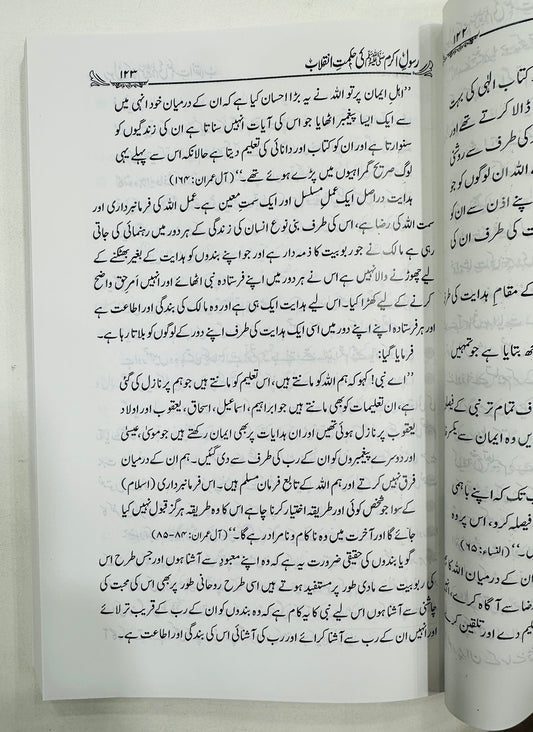 رسولِ اکرم ﷺ کی حکمتِ انقلاب
۱۲۳
”اہلِ ایمان پر تو اللہ نے یہ بڑا احسان کیا ہے کہ ان کے درمیان خود انہی میں
سے ایک ایسا پیغمبر اٹھایا جو اس کی آیات انہیں سناتا ہے ان کی زندگیوں کو
سنوارتا ہے اور ان کو کتاب اور دانائی کی تعلیم دیتا ہے حالانکہ اس سے پہلے یہی
لوگ صریح گمراہیوں میں پڑے ہوئے تھے۔“ (آل عمران: ۱۶۴)
ہدایت دراصل ایک عملِ مسلسل اور ایک سمتِ معین ہے۔ عمل اللہ کی فرمانبرداری اور
سمت اللہ کی رضا ہے، اس کی طرف بنی نوع انسان کی زندگی کے ہر دور میں رہنمائی کی جاتی
رہی ہے مالک نے جو ربوبیت کا ذمہ دار ہے اور جو اپنے بندوں کو ہدایت کے بغیر بھٹکنے کے
لیے چھوڑنے والا نہیں ہے اس نے ہر دور میں اپنے فرستادہ نبی اٹھائے اور انہیں اَمرِ حق واضح
کرنے کے لیے کھڑا کیا۔ اس لیے ہدایت ایک ہی ہے اور وہ مالک کی بندگی اور اطاعت ہے
اور ہر فرستادہ اپنے اپنے دور میں اسی ایک ہدایت کی طرف اپنے دور کے لوگوں کو بلاتا رہا ہے۔
فرمایا گیا:
”اے نبی! کہو کہ ہم اللہ کو مانتے ہیں، اس تعلیم کو مانتے ہیں جو ہم پر نازل کی گئی
ہے، ان تعلیمات کو بھی مانتے ہیں جو ابراہیم، اسماعیل، اسحاق، یعقوب اور اولاد
یعقوب پر نازل ہوئی تھیں اور ان ہدایات پر بھی ایمان رکھتے ہیں جو موسیٰ، عیسیٰ
اور دوسرے پیغمبروں کو ان کے رب کی طرف سے دی گئیں۔ ہم ان کے درمیان
فرق نہیں کرتے اور ہم اللہ کے تابع فرمان مسلم ہیں۔ اس فرمانبرداری (اسلام)
کے سوا جو شخص کوئی اور طریقہ اختیار کرنا چاہے اس کا وہ طریقہ ہرگز قبول نہیں کیا
جائے گا اور آخرت میں وہ ناکام و نامراد رہے گا۔“ (آل عمران: ۸۴-۸۵)
گویا بندوں کی حقیقی ضرورت یہ ہے کہ وہ اپنے معبود سے آشنا ہوں اور جس طرح اس
کی ربوبیت سے مادی طور پر مستفید ہوتے ہیں اسی طرح روحانی طور پر بھی اس کی محبت کی
چاشنی سے آشنا ہوں اس لیے نبی کا یہ کام ہے کہ وہ بندوں کو ان کے رب کے قریب تر لائے
اور انہیں ان کے رب سے آشنا کرائے اور رب کی آشنائی اس کی بندگی اور اطاعت ہے۔
۱۲۲
کتاب الٰہی کی بہت
ڈالا کرتے تھے اور
کی طرف سے روشنی
اللہ ان لوگوں کو جو
اپنے اذن سے ان کو
کی طرف ان کی
کے مقامِ ہدایت کی طرف
بتایا ہے جو تمہیں
تمام تر نبی کے فیصلے
وہ ایمان سے یکسر
تک کہ اپنے باہمی
فیصلہ کرو، اس پر وہ
(النساء: ۶۵)
کے درمیان اللہ کا
سے آگاہ کرے،
دے اور تلقین کرے